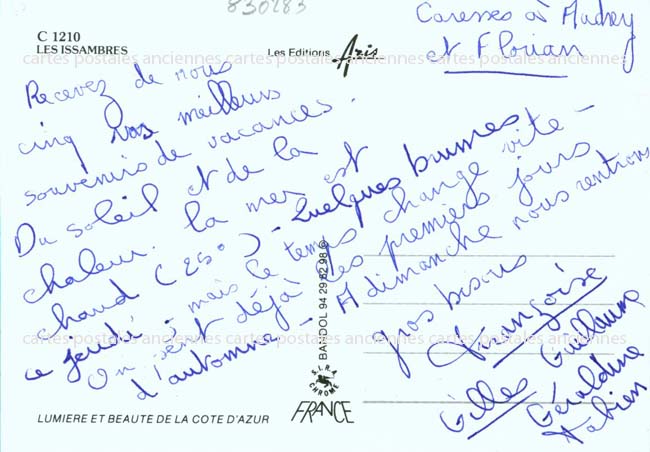 830283
C 1210
LES ISSAMBRES
Les Editions Aris
Caresses à Audrey
et Florian
cartes postales anciennes cartes postales anciennes cartes postales anciennes
Recevez de nous
cinq nos meilleurs
souvenirs de vacances.
Du soleil et de la
chaleur. la mer est
chaud (25°) - Quelques brumes
ce jeudi ; mais le temps change vite -
On sent déjà les premiers jours
d'automne - A dimanche nous rentrons
gros bisous
Françoise
Gilles Guillaume
Géraldine
Fabien
cartes postales anciennes cartes postales anciennes cartes postales anciennes
® BANDOL 94 29 62 98
S.I.R.A.
CHROME
FRANCE
LUMIERE ET BEAUTE DE LA COTE D'AZUR